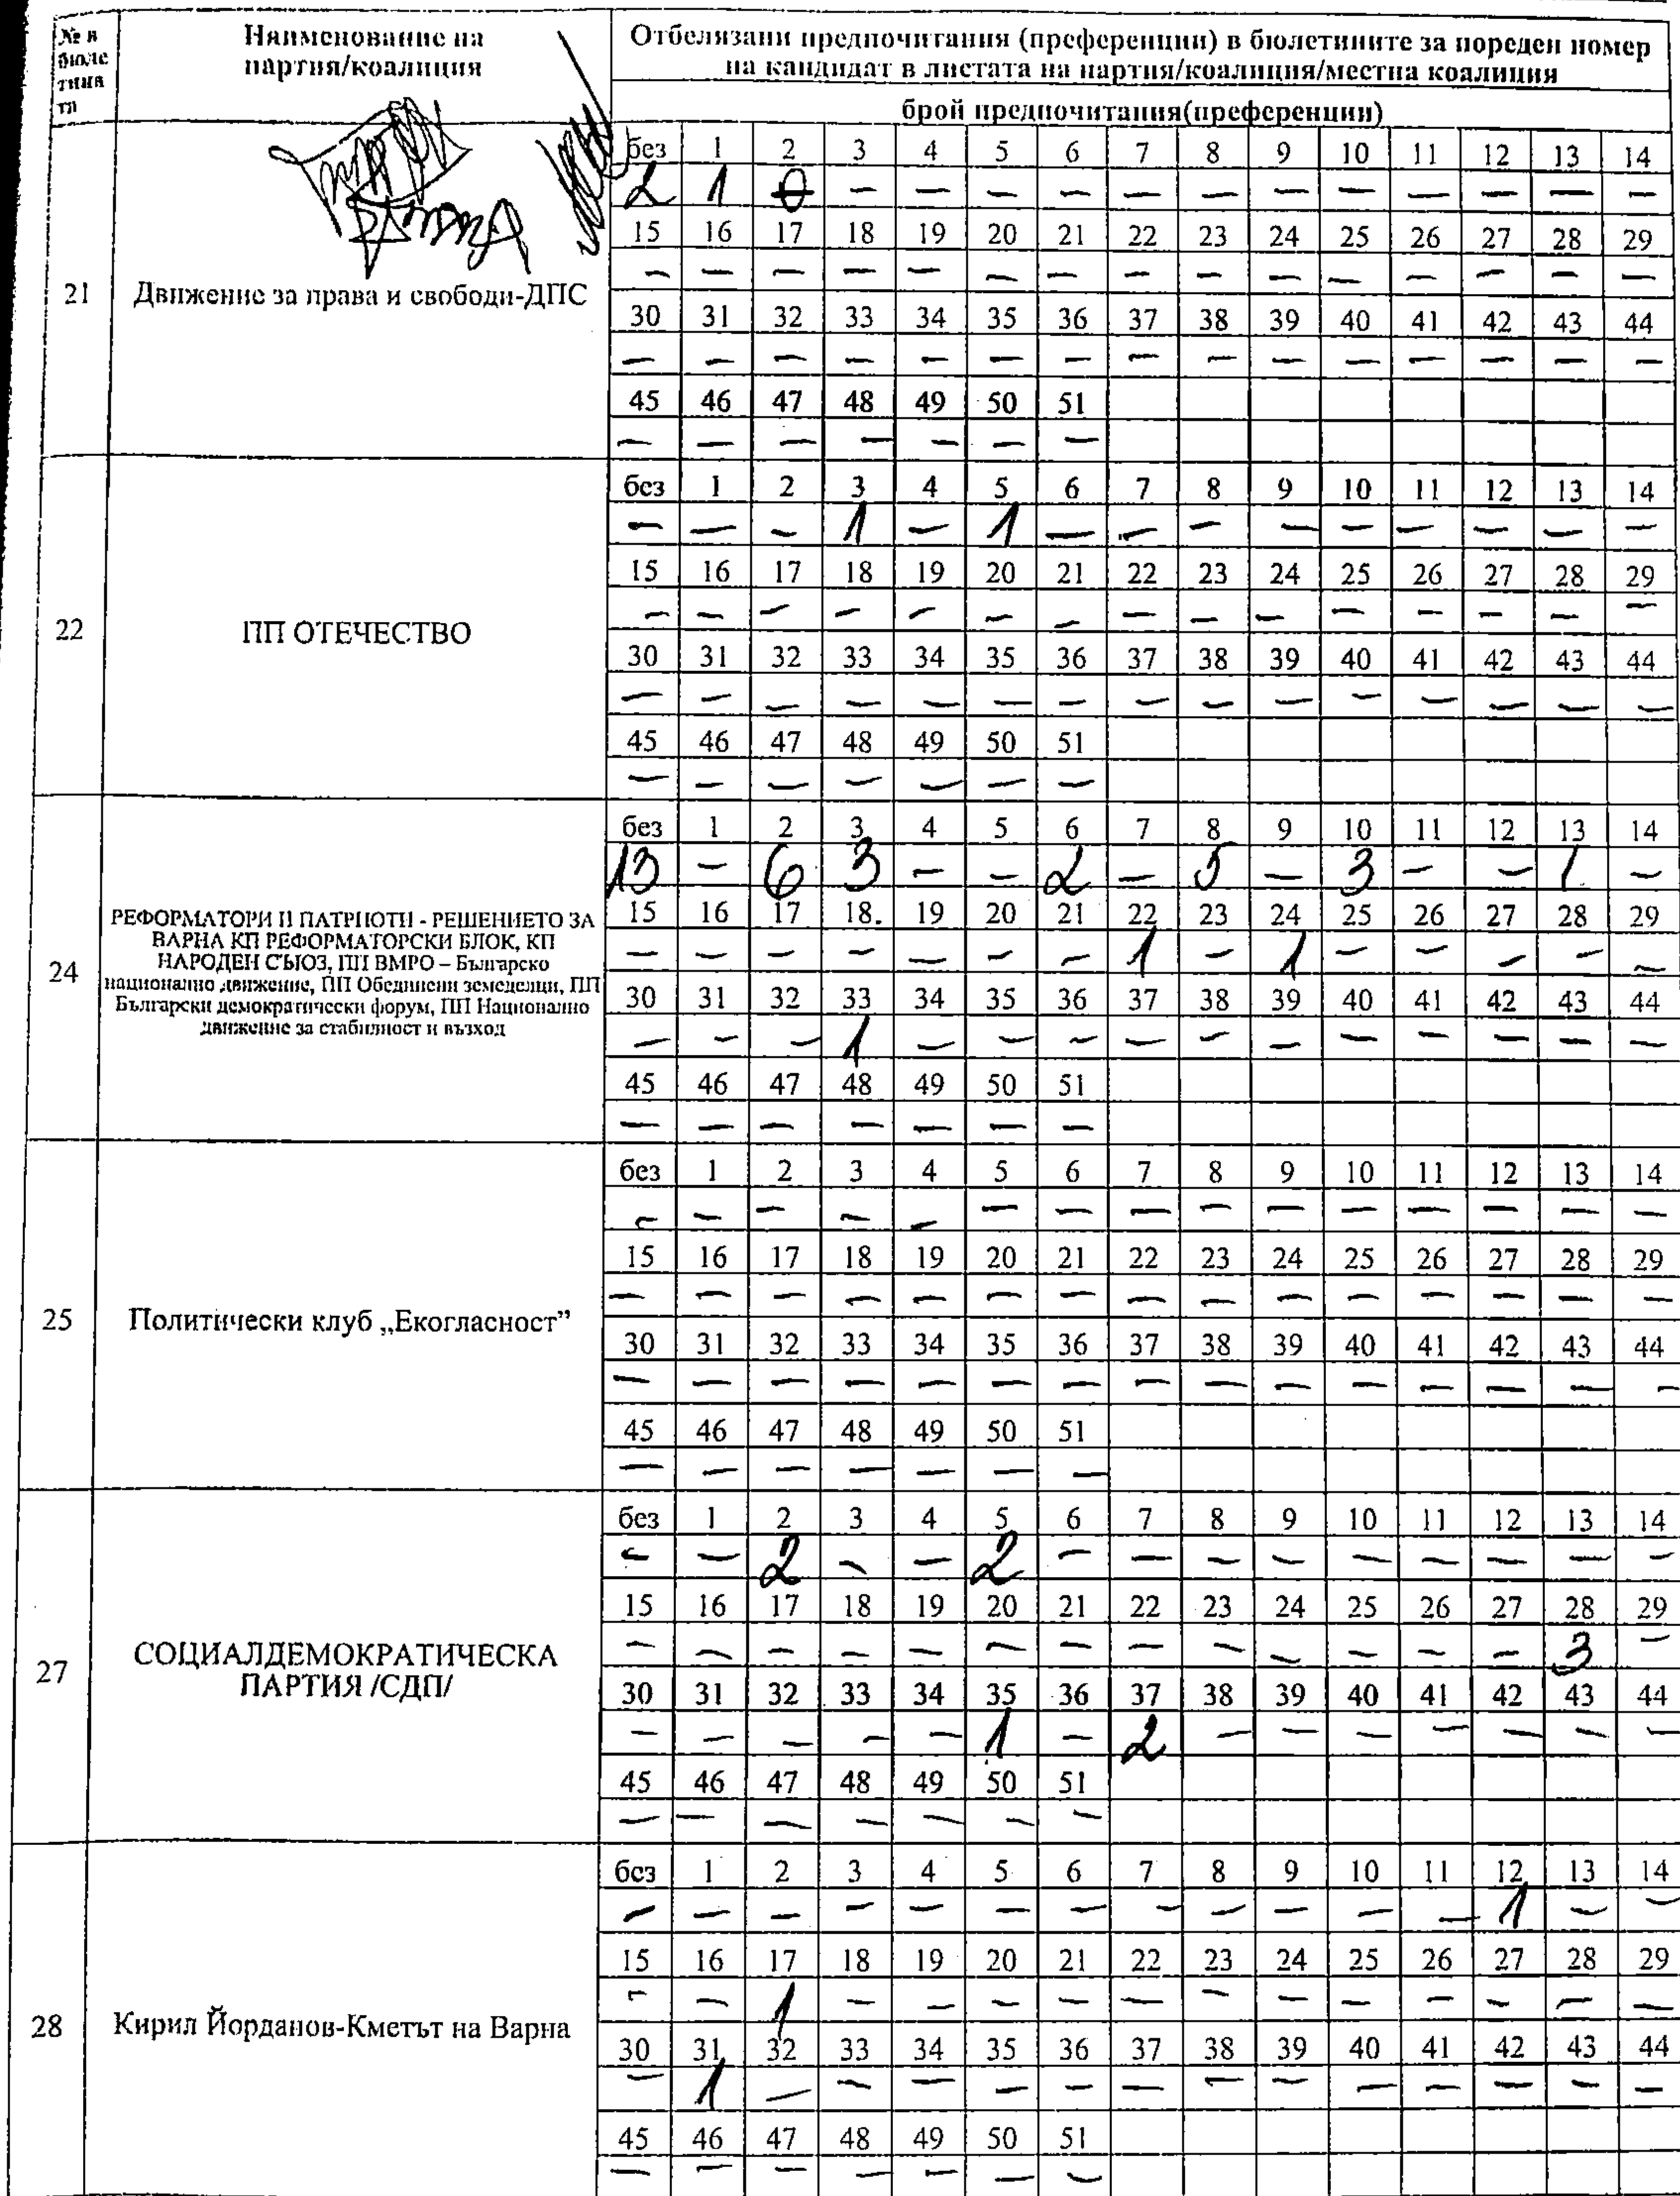 № в бюле тина та
Наименование на партия/коалиция
Отбелязани предпочитания (преференции) в бюлетините за пореден номер на кандидат в листата на партия/коалиция/местна коалиция
брой предпочитания(преференции)
21
Движение за права и свободи-ДПС
без 1 2 3 4 5 6 7 8 9 10 11 12 13 14
2 1 0 — — — — — — — — — — — —
15 16 17 18 19 20 21 22 23 24 25 26 27 28 29
— — — — — — — — — — — — — — —
30 31 32 33 34 35 36 37 38 39 40 41 42 43 44
— — — — — — — — — — — — — — —
45 46 47 48 49 50 51
— — — — — — —
22
ПП ОТЕЧЕСТВО
без 1 2 3 4 5 6 7 8 9 10 11 12 13 14
— — — 1 — 1 — — — — — — — — —
15 16 17 18 19 20 21 22 23 24 25 26 27 28 29
— — — — — — — — — — — — — — —
30 31 32 33 34 35 36 37 38 39 40 41 42 43 44
— — — — — — — — — — — — — — —
45 46 47 48 49 50 51
— — — — — — —
24
РЕФОРМАТОРИ И ПАТРИОТИ - РЕШЕНИЕТО ЗА
ВАРНА КП РЕФОРМАТОРСКИ БЛОК, КП
НАРОДЕН СЪЮЗ, ПП ВМРО – Българско
национално движение, ПП Обединени земеделци, ПП
Български демократически форум, ПП Национално
движение за стабилност и възход
без 1 2 3 4 5 6 7 8 9 10 11 12 13 14
13 — 6 3 — — 2 — 5 — 3 — — 1 —
15 16 17 18. 19 20 21 22 23 24 25 26 27 28 29
— — — — — — — 1 — 1 — — — — —
30 31 32 33 34 35 36 37 38 39 40 41 42 43 44
— — — 1 — — — — — — — — — — —
45 46 47 48 49 50 51
— — — — — — —
25
Политически клуб „Екогласност”
без 1 2 3 4 5 6 7 8 9 10 11 12 13 14
— — — — — — — — — — — — — — —
15 16 17 18 19 20 21 22 23 24 25 26 27 28 29
— — — — — — — — — — — — — — —
30 31 32 33 34 35 36 37 38 39 40 41 42 43 44
— — — — — — — — — — — — — — —
45 46 47 48 49 50 51
— — — — — — —
27
СОЦИАЛДЕМОКРАТИЧЕСКА
ПАРТИЯ /СДП/
без 1 2 3 4 5 6 7 8 9 10 11 12 13 14
— — 2 — — 2 — — — — — — — — —
15 16 17 18 19 20 21 22 23 24 25 26 27 28 29
— — — — — — — — — — — — — 3 —
30 31 32 33 34 35 36 37 38 39 40 41 42 43 44
— — — — — 1 — 2 — — — — — — —
45 46 47 48 49 50 51
— — — — — — —
28
Кирил Йорданов-Кметът на Варна
без 1 2 3 4 5 6 7 8 9 10 11 12 13 14
— — — — — — — — — — — — 1 — —
15 16 17 18 19 20 21 22 23 24 25 26 27 28 29
— — 1 — — — — — — — — — — — —
30 31 32 33 34 35 36 37 38 39 40 41 42 43 44
— 1 — — — — — — — — — — — — —
45 46 47 48 49 50 51
— — — — — — —